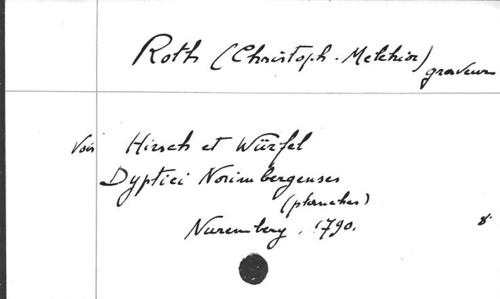 Roth (Christoph. Melchior)
graveur
Voir Hirsch et Würfel
Dyptici Norimbergenses
(planches)
Nuremberg. 1790.
8°